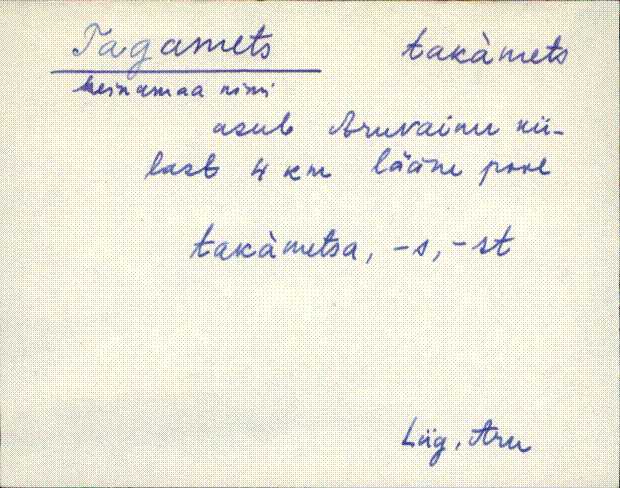 Tagamets takàmets
heinamaa nimi
asub Aruvainu kü-
last 4 km lääne pool
takàmetsa, -s, -st
Liig, Aru